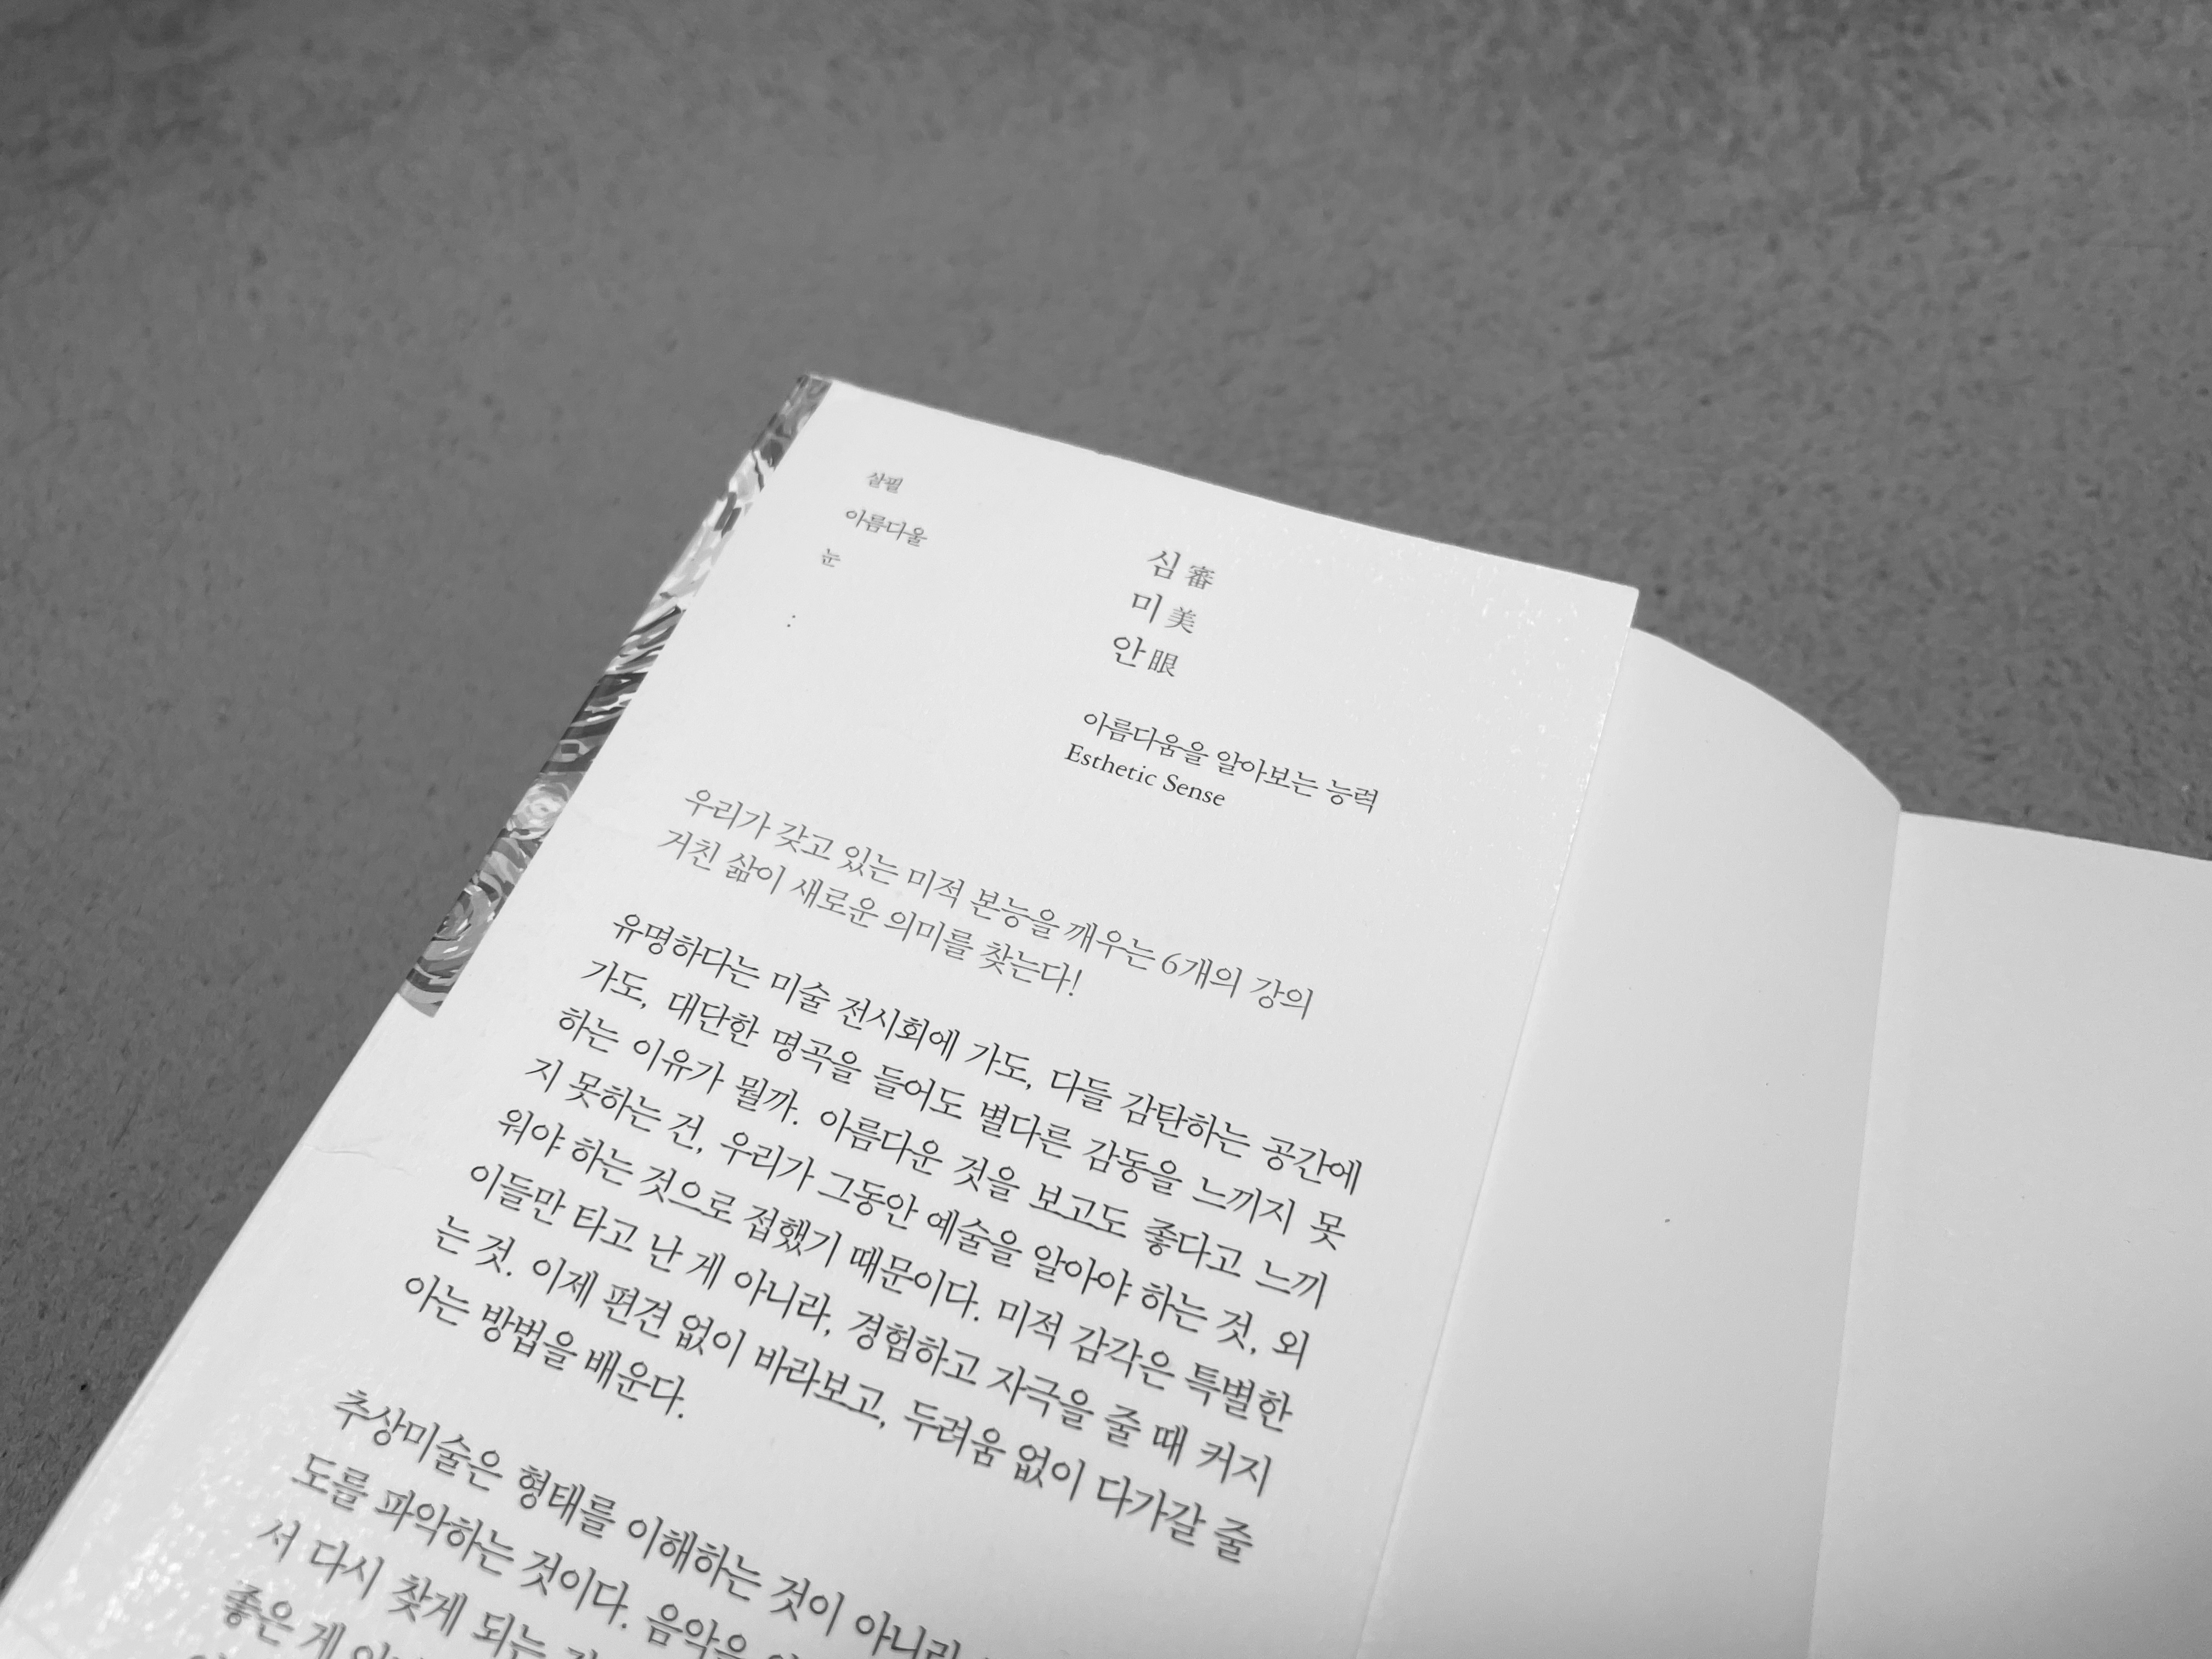 살필
아름다울
눈
:
심 審
미 美
안 眼
아름다움을 알아보는 능력
Esthetic Sense
우리가 갖고 있는 미적 본능을 깨우는 6개의 강의
거친 삶이 새로운 의미를 찾는다!
유명하다는 미술 전시회에 가도, 다들 감탄하는 공간에
가도, 대단한 명곡을 들어도 별다른 감동을 느끼지 못
하는 이유가 뭘까. 아름다운 것을 보고도 좋다고 느끼
지 못하는 건, 우리가 그동안 예술을 알아야 하는 것, 외
워야 하는 것으로 접했기 때문이다. 미적 감각은 특별한
이들만 타고 난 게 아니라, 경험하고 자극을 줄 때 커지
는 것. 이제 편견 없이 바라보고, 두려움 없이 다가갈 줄
아는 방법을 배운다.
추상미술은 형태를 이해하는 것이 아니라
도를 파악하는 것이다. 음악은
서 다시 찾게 되는
좋은 게